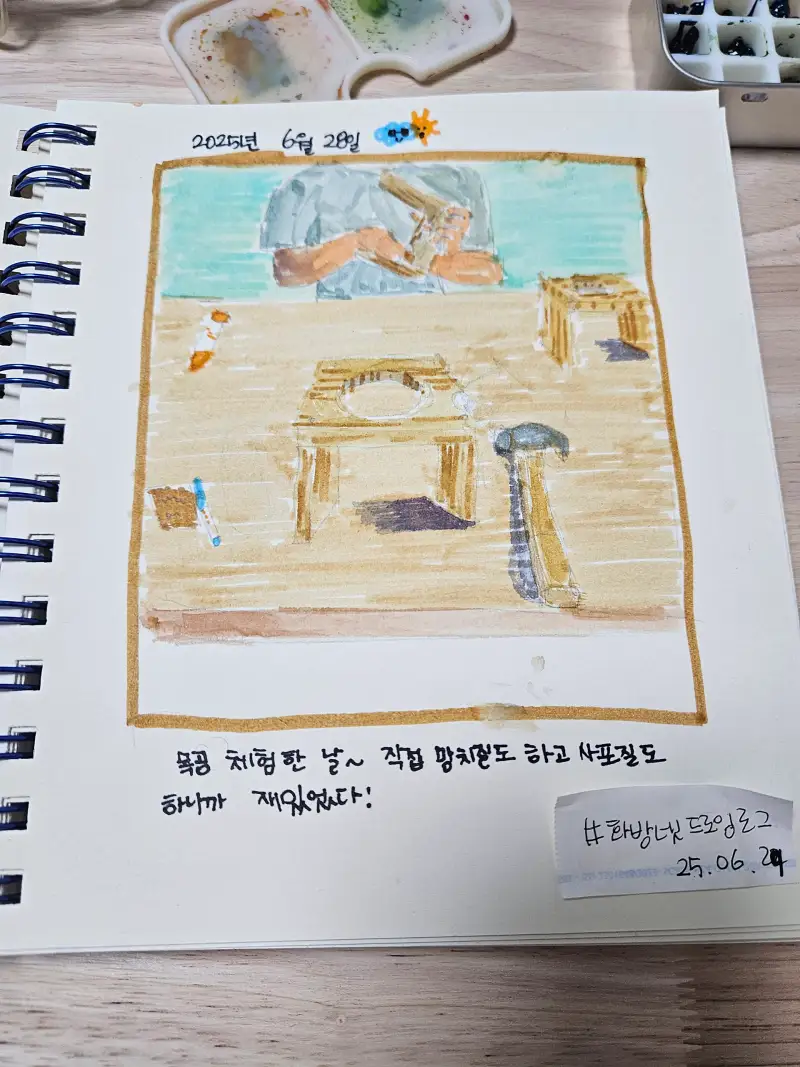 2025년 6월 28일
목공 체험한 날~ 직접 망치질도 하고 사포질도
하니까 재밌었다!
#화방넷드로잉로그
25.06.29